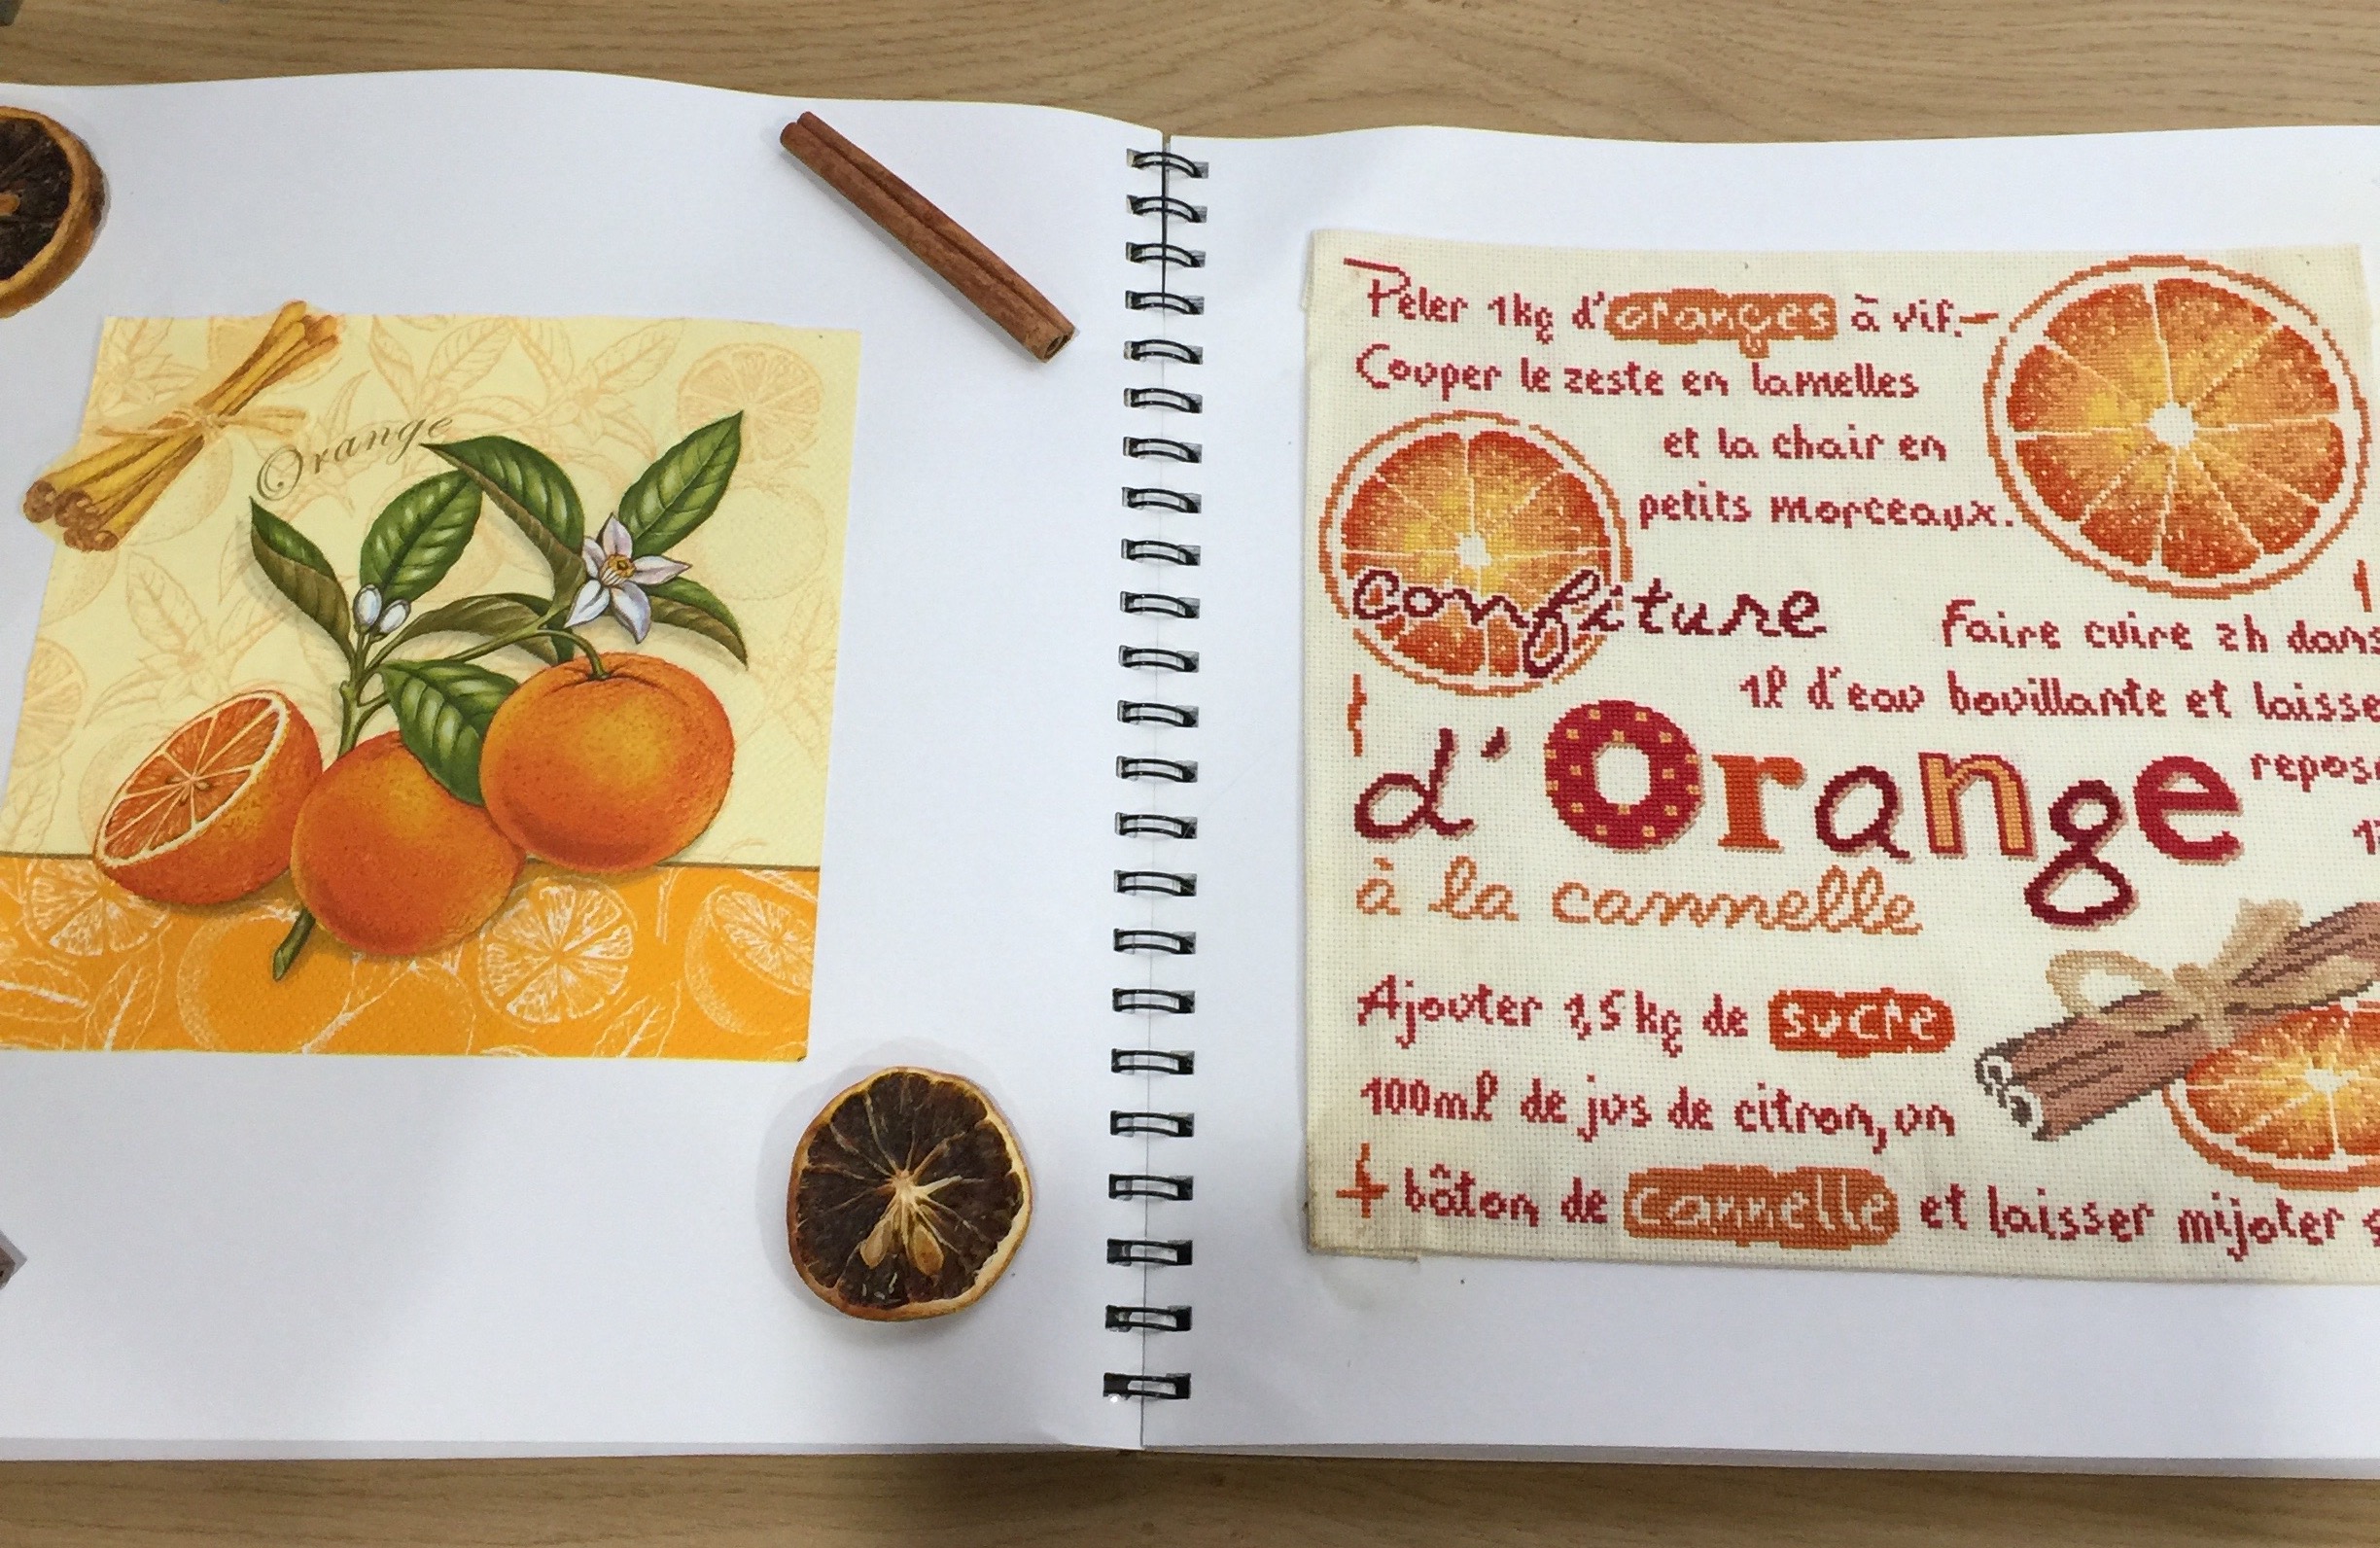 Orange
Peler 1kg d'oranges à vif.
Couper le zeste en lamelles
et la chair en
petits morceaux.
confiture
Faire cuire 2h dans
1l d'eau bouillante et
d'Orange
à la cannelle
Ajouter 1,5 kg de sucre
100ml de jus de citron, un
bâton de cannelle et laisser mijoter